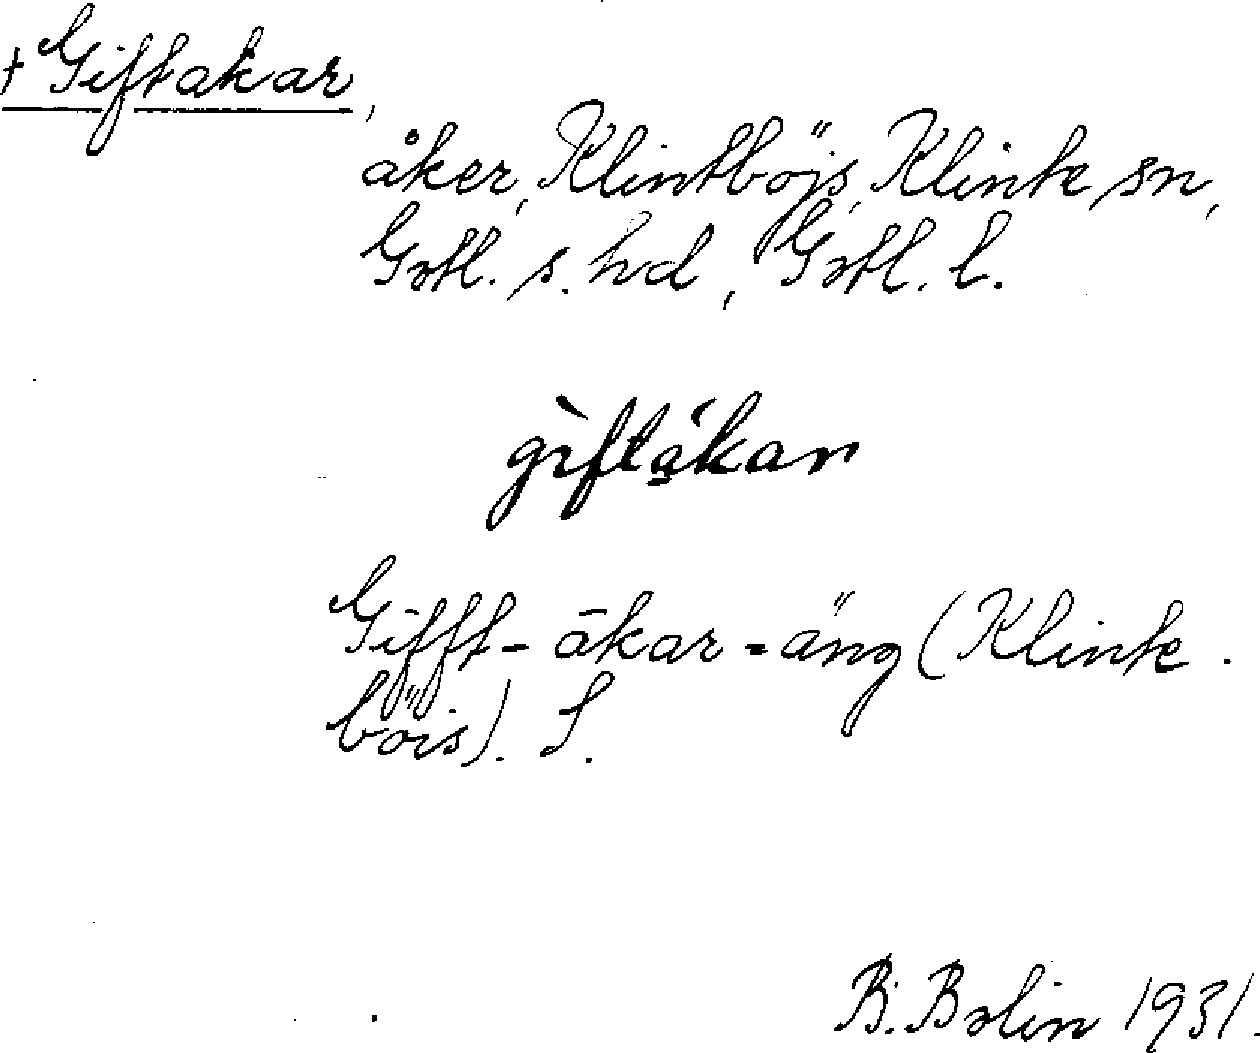 † Giftakar,
åker, Klintböjs, Klinte sn,
Gotl. s. hd, Gotl. l.
gìftákar
Gifft-ākar-äng (Klinte-
böis). S.
B. Bolin 1931.